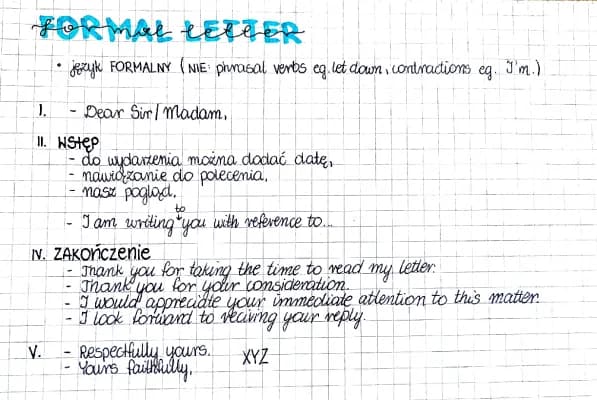 FORMAL LETTER
formal letter
• język FORMALNY (NIE: phrasal verbs eg. let down, contractions eg. I'm.)
I. - Dear Sir/Madam,
II. WSTĘP
- do wydarzenia można dodać datę,
- nawiązanie do polecenia,
- nasz pogląd,
to
- I am writing you with reference to...
IV. ZAKOŃCZENIE
- Thank you for taking the time to read my letter.
- Thank you for your consideration.
- I would appreciate your immediate attention to this matter.
- I look forward to reciving your reply.
V. - Respectfully yours. XYZ
- Yours faithfully,